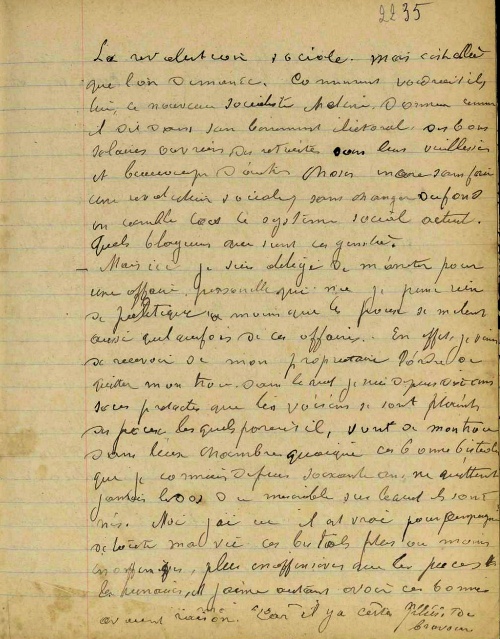 2235
La revolution sociale. mais cest elle
que l'on demande. Comment voudrait ils
lui, ce nouveau socialiste
il dit dans son boniment electoral des bons
salaires ouvriers des retraites dans leur vieillesse
et beaucoup d'autres choses encore sans faire
une revolution sociale, sans changer du fond
en comble tout le système social actuel.
Quels blagueurs que sont ces gens là.
Mais ici je suis obligé de m'arrêter pour
une affaire personnelle qui n'a je pense rien
de politique à moins que les poux se mêlent
aussi quelquefois de ces affaires. En effet, je viens
de recevoir de mon proprietaire l'ordre de
quitter mon trou dans lequel je suis depuis ans
sous pretexte que les voisins se sont plaints
des poux, lesquels parait il, vont de mon trou
dans leur chambre quoique ces bonnes bestioles
que je connais depuis soixante ans, ne quittent
jamais le dos du miserable sur lequel ils sont
nés. Moi j'ai eu il est vrai pour compagnes
de toute ma vie ces bestioles plus ou moins
inoffensives, plus inoffensives que les puces et
les punaises, et j'aime autant avoir ces bonnes
Car il y a certes plus de
bravoure